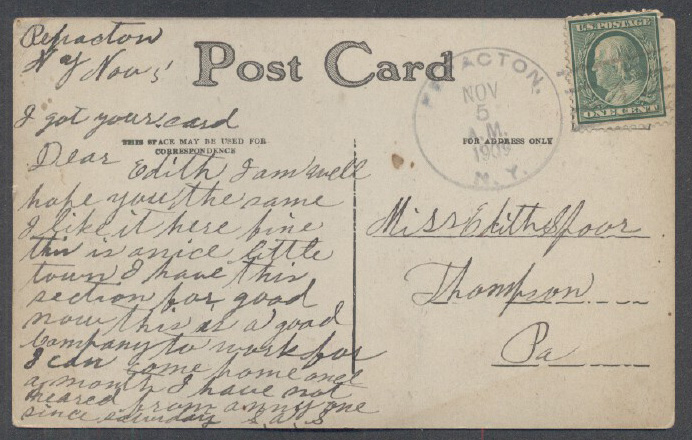 Pepacton
N Y Nov 5'
Post Card
I got your card
THIS SPACE MAY BE USED FOR
CORRESPONDENCE
FOR ADDRESS ONLY
Dear Edith I am well
hope you the same
I like it here fine
this is a nice little
town I have this
section for good
now this is a good
Company to work for
I can come home once
a month I have not
heared from annyone
since saturday S. A. S
PEPACTON.
NOV
5
A.M.
1909
N.Y.
U.S. POSTAGE
ONE CENT
Miss Edith Spoor
Thompson
Pa